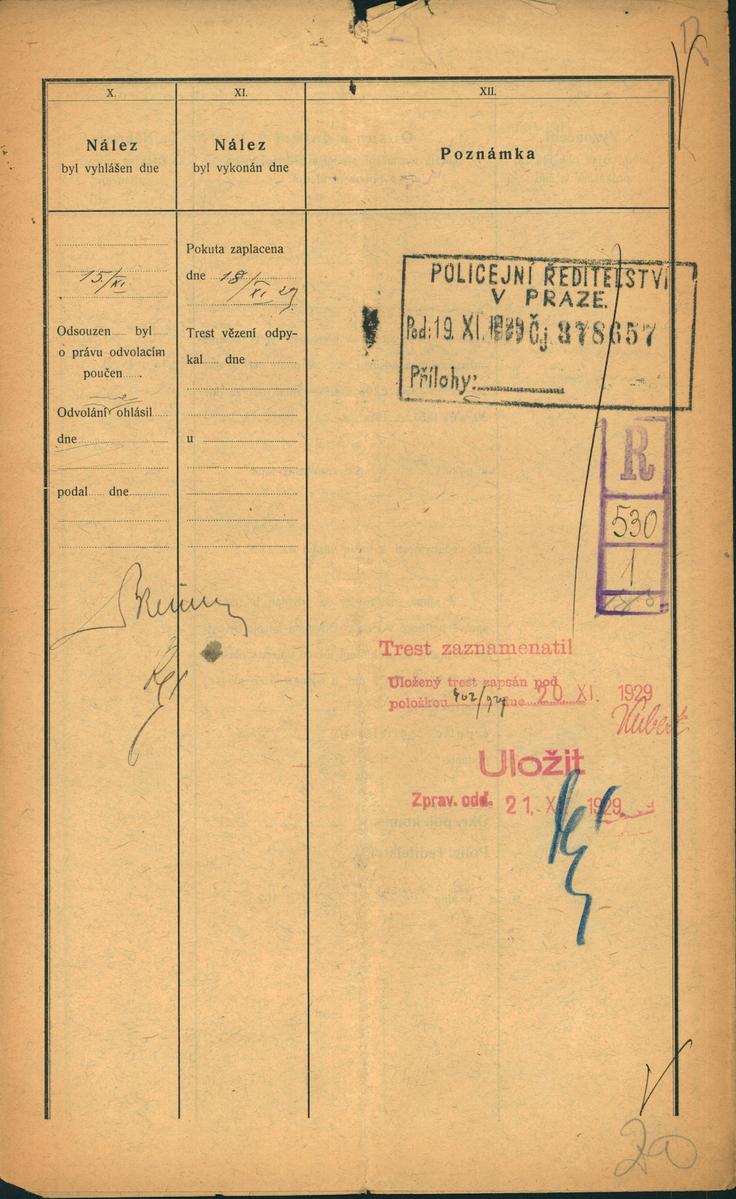 X.
Nález
byl vyhlášen dne
15/XI.
Odsouzen byl
o právu odvolacím
poučen
Odvolání ne ohlásil
dne
podal dne
XI.
Nález
byl vykonán dne
Pokuta zaplacena
dne 18/XI 29
Trest vězení odpy-
kal dne
u
XII.
Poznámka
POLICEJNÍ ŘEDITELSTVÍ
V PRAZE.
Pod: 19. XI. 1929 Čj. 378657
Přílohy:
R
530
1
Trest zaznamenati!
Uložený trest zapsán pod
položkou 402/929 dne 20 XI. 1929
Uložit
Zprav. odd. 21. XI. 1929
20